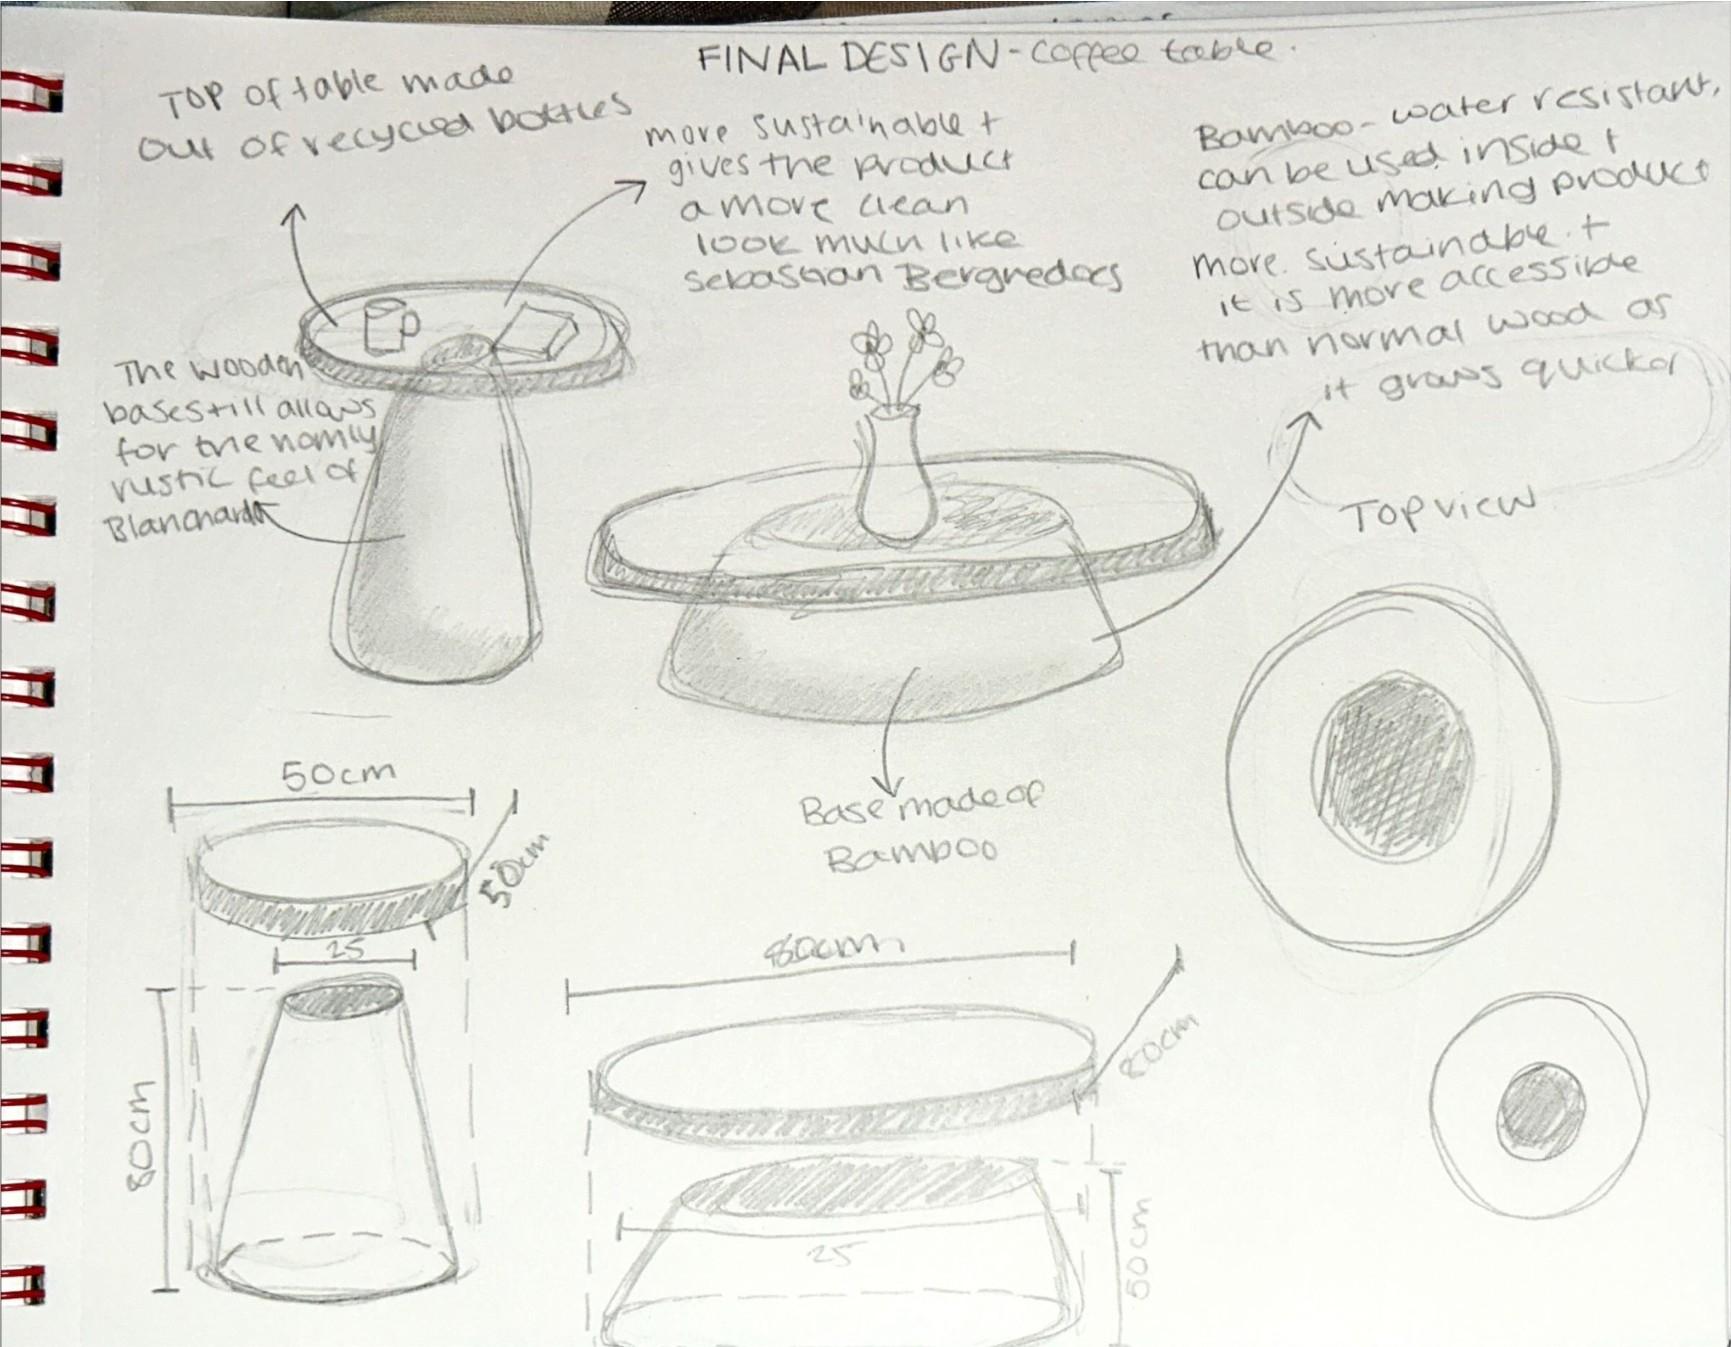 FINAL DESIGN - coffee table.
TOP of table made
out of recycled bottles
more sustainable +
gives the product
a more clean
look much like
sebastian
Bamboo - water resistant,
can be used inside +
outside making product
more. sustainable. +
it is more accessible
than normal wood as
it grows quicker
The wooden
base still allows
for the homly
rustic feel of
Top view
Base made of
Bamboo
50cm
50cm
25
80cm
80cm
80cm
25
50cm